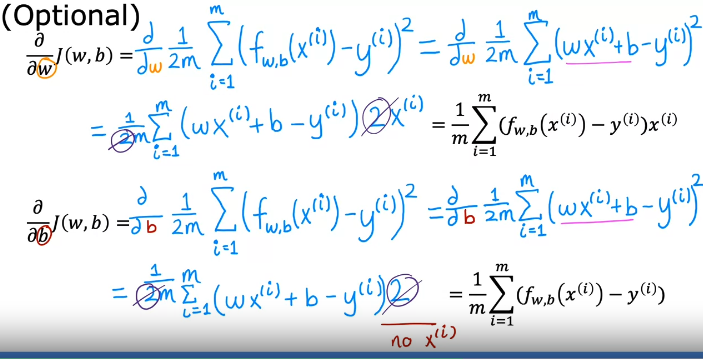 (Optional)
∂/∂w J(w, b) = ∂/∂w 1/2m ∑_{i=1}^{m} (f_{w,b}(x^{(i)}) − y^{(i)})² = ∂/∂w 1/2m ∑_{i=1}^{m} (wx^{(i)} + b − y^{(i)})²
= 1/2m ∑_{i=1}^{m} (wx^{(i)} + b − y^{(i)}) 2x^{(i)} = 1/m ∑_{i=1}^{m} (f_{w,b}(x^{(i)}) − y^{(i)})x^{(i)}
∂/∂b J(w, b) = ∂/∂b 1/2m ∑_{i=1}^{m} (f_{w,b}(x^{(i)}) − y^{(i)})² = ∂/∂b 1/2m ∑_{i=1}^{m} (wx^{(i)} + b − y^{(i)})²
= 1/2m ∑_{i=1}^{m} (wx^{(i)} + b − y^{(i)}) 2 = 1/m ∑_{i=1}^{m} (f_{w,b}(x^{(i)}) − y^{(i)})
no x^{(i)}